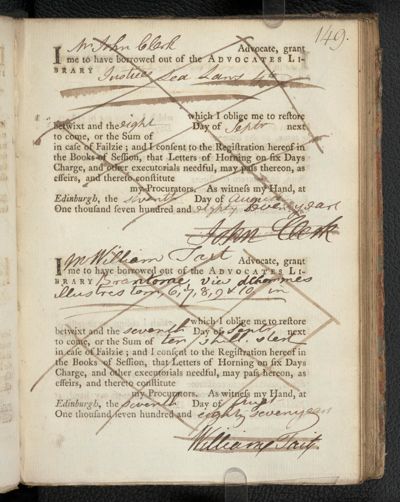 149.
I Mr John Clerk Advocate, grant
me to have borrowed out of the ADVOCATES LI-
BRARY Justices Sea Laws 4to
which I oblige me to restore
betwixt and the eight Day of Septr next
to come, or the Sum of
in case of Failzie; and I consent to the Registration hereof in
the Books of Session, that Letters of Horning on six Days
Charge, and other executorials needful, may pass thereon, as
effeirs, and thereto constitute
my Procurators. As witness my Hand, at
Edinburgh, the seventh Day of August
One thousand seven hundred and eighty seven years
John Clerk
I Mr William Tait Advocate, grant
me to have borrowed out of the ADVOCATES LI-
BRARY Brantome Vies dhommes
illustres tom, 6, 7, 8, 9 & 10 in
which I oblige me to restore
betwixt and the seventh Day of Septr next
to come, or the Sum of ten shill. sterl
in case of Failzie; and I consent to the Registration hereof in
the Books of Session, that Letters of Horning on six Days
Charge, and other executorials needful, may pass hereon, as
effeirs, and thereto constitute
my Procurators. As witness my Hand, at
Edinburgh, the seventh Day of August
One thousand seven hundred and eighty seven years
William Tait